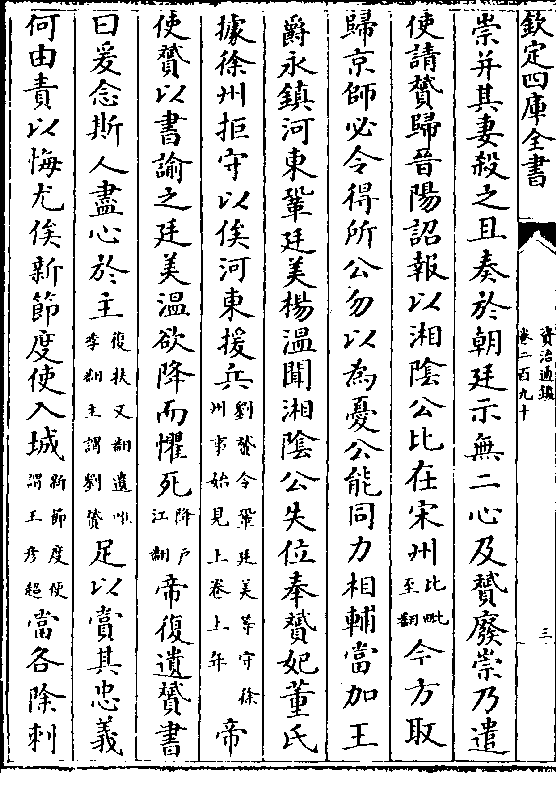 欽定四庫全書
資治通鑑
卷二百九十
三
崇并其妻殺之且奏於朝廷示無二心及贇廢崇乃遣
使請贇歸晉陽詔報以湘隂公比在宋州比毗至翻今方取
歸京師必令得所公勿以為憂公能同力相輔當加王
爵永鎮河東鞏廷美楊溫聞湘隂公失位奉贇妃董氏
據徐州拒守以俟河東援兵劉贇令鞏廷美等守徐州事始見上卷上年帝
使贇以書諭之廷美溫欲降而懼死降户江翻帝復遺贇書
曰爰念斯人盡心於主復扶又翻遺唯季翻主謂劉贇足以賞其忠義
何由責以悔尤俟新節度使入城新節度使謂王彦超當各除刺